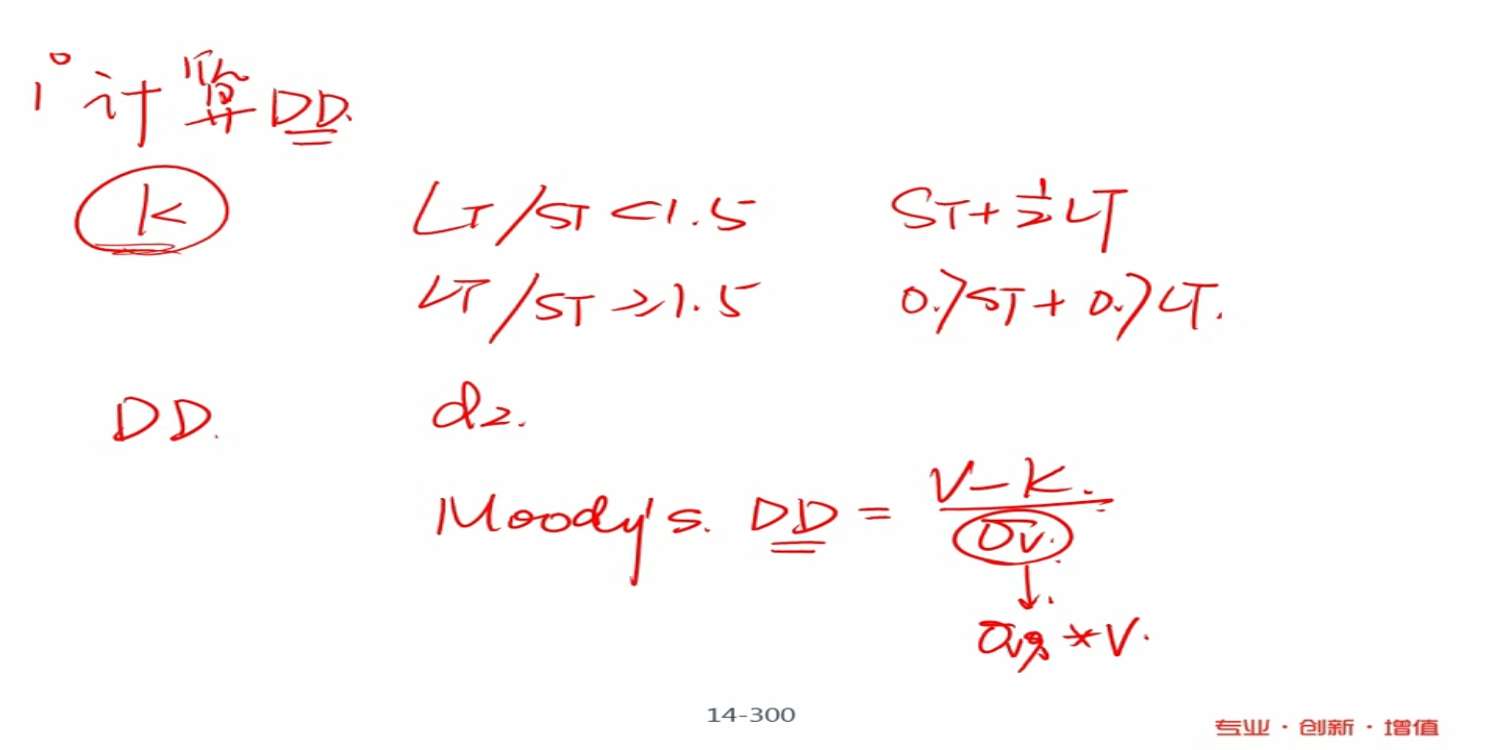 1° 计算DD.
K LT/ST<1.5 ST+½LT
LT/ST≥1.5 0.7ST+0.7LT.
DD. d2.
Moody's. DD = V-K. / σv.
↓
σv% * V.
14-300
专业·创新·增值